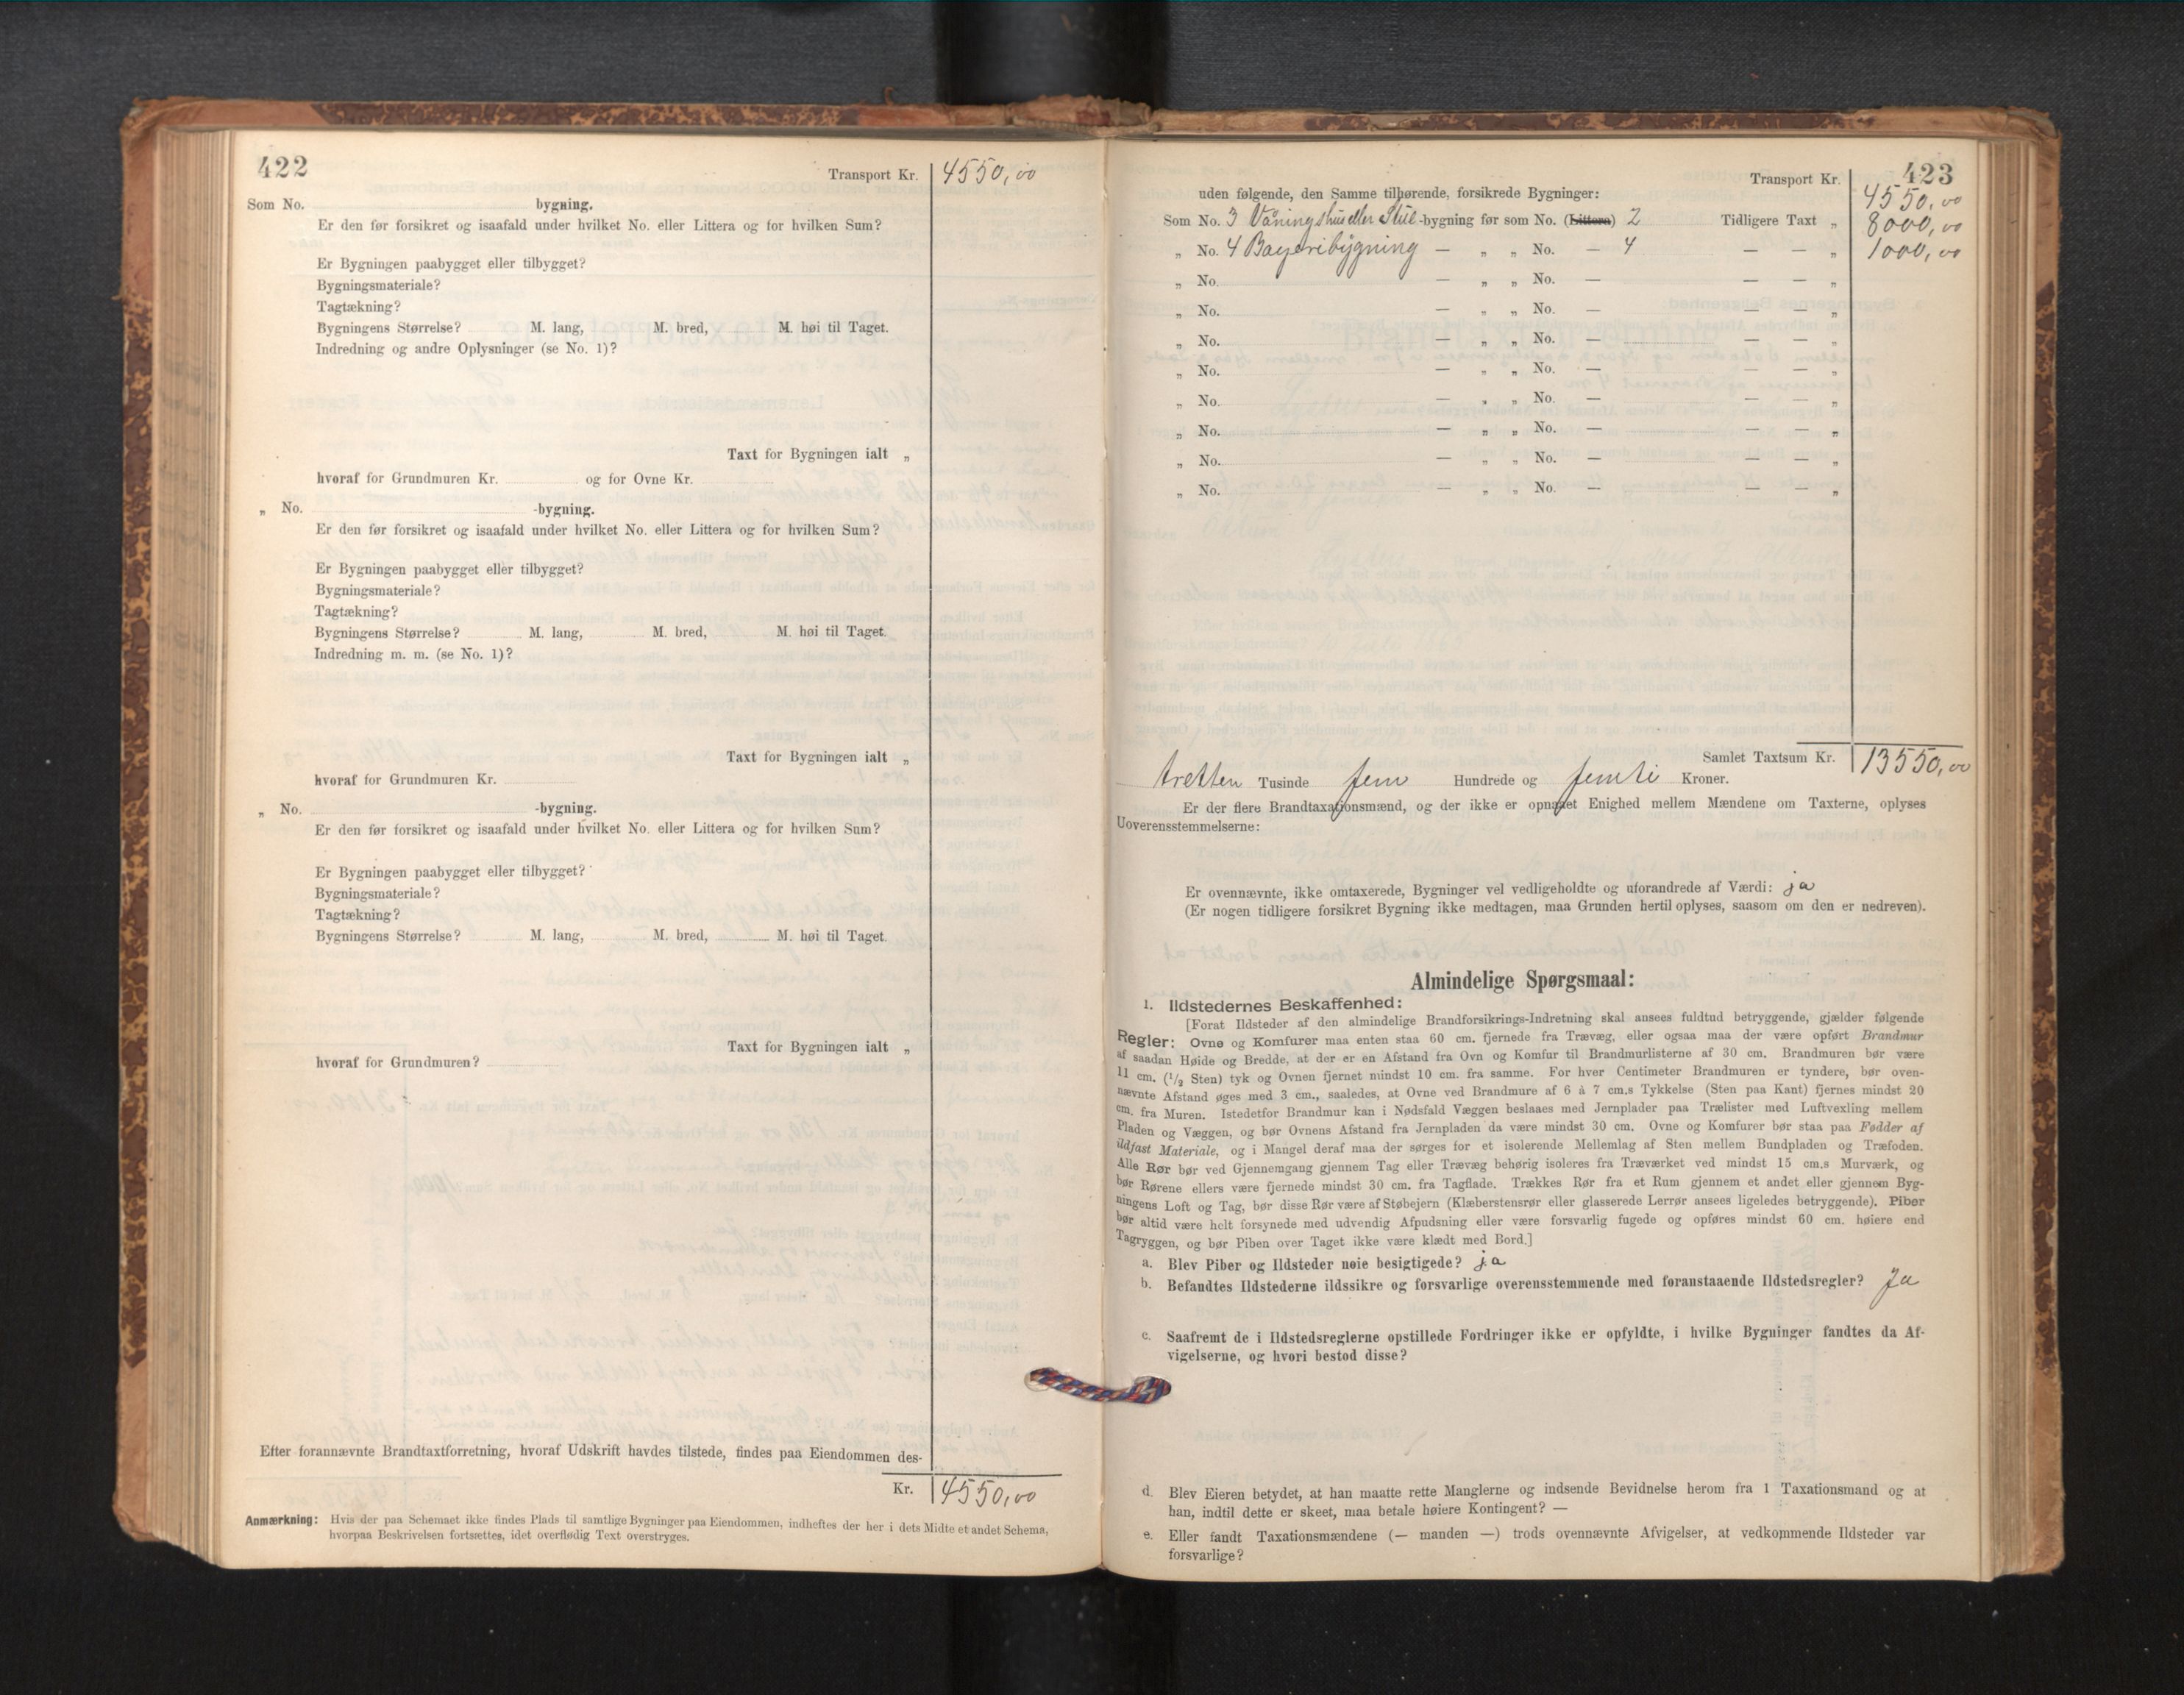 422
Transport Kr. 4550,00
Som No. bygning.
Er den før forsikret og isaafald under hvilket No. eller Littera og for hvilken Sum?
Er Bygningen paabygget eller tilbygget?
Bygningsmateriale?
Tagtækning?
Bygningens Størrelse? M. lang, M. bred, M. høi til Taget.
Indredning og andre Oplysninger (se No. 1)?
Taxt for Bygningen ialt „
hvoraf for Grundmuren Kr. og for Ovne Kr.
„ No. -bygning.
Er den før forsikret og isaafald under hvilket No. eller Littera og for hvilken Sum?
Er Bygningen paabygget eller tilbygget?
Bygningsmateriale?
Tagtækning?
Bygningens Størrelse? M. lang, M. bred, M. høi til Taget.
Indredning m. m. (se No. 1)?
Taxt for Bygningen ialt „
hvoraf for Grundmuren Kr.
„ No. -bygning.
Er den før forsikret og isaafald under hvilket No. eller Littera og for hvilken Sum?
Er Bygningen paabygget eller tilbygget?
Bygningsmateriale?
Tagtækning?
Bygningens Størrelse? M. lang, M. bred, M. høi til Taget.
Taxt for Bygningen ialt „
hvoraf for Grundmuren?
Efter forannævnte Brandtaxtforretning, hvoraf Udskrift havdes tilstede, findes paa Eiendommen des-
Kr. 4550,00
Anmærkning: Hvis der paa Schemaet ikke findes Plads til samtlige Bygninger paa Eiendommen, indheftes der her i dets Midte et andet Schema,
hvorpaa Beskrivelsen fortsættes, idet overflødig Text overstryges.
423
Transport Kr. 4550,00
uden følgende, den Samme tilhørende, forsikrede Bygninger:
Som No. 3 Våningshus eller Stue-bygning før som No. (Littera) 2 Tidligere Taxt „ 8000,00
„ No. 4 Bayeribygning — „ „ No. — 4 — — „ 1000,00
„ No. — „ „ No. — — — „
„ No. — „ „ No. — — — „
„ No. — „ „ No. — — — „
„ No. — „ „ No. — — — „
„ No. — „ „ No. — — — „
„ No. — „ „ No. — — — „
„ No. — „ „ No. — — — „
„ No. — „ „ No. — — — „
Samlet Taxtsum Kr. 13550,00
tretten Tusinde fem Hundrede og femti Kroner.
Er der flere Brandtaxationsmænd, og der ikke er opnaaet Enighed mellem Mændene om Taxterne, oplyses
Uoverensstemmelserne:
Er ovennævnte, ikke omtaxerede, Bygninger vel vedligeholdte og uforandrede af Værdi: ja
(Er nogen tidligere forsikret Bygning ikke medtagen, maa Grunden hertil oplyses, saasom om den er nedreven).
Almindelige Spørgsmaal:
1. Ildstedernes Beskaffenhed:
[Forat Ildsteder af den almindelige Brandforsikrings-Indretning skal ansees fuldtud betryggende, gjælder følgende
Regler: Ovne og Komfurer maa enten staa 60 cm. fjernede fra Trævæg, eller ogsaa maa der være opført Brandmur
af saadan Høide og Bredde, at der er en Afstand fra Ovn og Komfur til Brandmurlisterne af 30 cm. Brandmuren bør være
11 cm. (1/2 Sten) tyk og Ovnen fjernet mindst 10 cm. fra samme. For hver Centimeter Brandmuren er tyndere, bør oven-
nævnte Afstand øges med 3 cm., saaledes, at Ovne ved Brandmure af 6 à 7 cm.s Tykkelse (Sten paa Kant) fjernes mindst 20
cm. fra Muren. Istedetfor Brandmur kan i Nødsfald Væggen beslaaes med Jernplader paa Trælister med Luftvexling mellem
Pladen og Væggen, og bør Ovnens Afstand fra Jernpladen da være mindst 30 cm. Ovne og Komfurer bør staa paa Fødder af
ildfast Materiale, og i Mangel deraf maa der sørges for et isolerende Mellemlag af Sten mellem Bundpladen og Træfoden.
Alle Rør bør ved Gjennemgang gjennem Tag eller Trævæg behørig isoleres fra Træværket ved mindst 15 cm.s Murværk, og
bør Rørene ellers være fjernede mindst 30 cm. fra Tagflade. Trækkes Rør fra et Rum gjennem et andet eller gjennem Byg-
ningens Loft og Tag, bør disse Rør være af Støbejern (Klæberstensrør eller glasserede Lerrør ansees ligeledes betryggende). Piber
bør altid være helt forsynede med udvendig Afpudsning eller være forsvarlig fugede og opføres mindst 60 cm. høiere end
Tagryggen, og bør Piben over Taget ikke være klædt med Bord.]
a. Blev Piber og Ildsteder nøie besigtigede? ja
b. Befandtes Ildstederne ildssikre og forsvarlige overensstemmende med foranstaaende Ildstedsregler? Ja
c. Saafremt de i Ildstedsreglerne opstillede Fordringer ikke er opfyldte, i hvilke Bygninger fandtes da Af-
vigelserne, og hvori bestod disse?
d. Blev Eieren betydet, at han maatte rette Manglerne og indsende Bevidnelse herom fra 1 Taxationsmand og at
han, indtil dette er skeet, maa betale høiere Kontingent? —
e. Eller fandt Taxationsmændene (— manden —) trods ovennævnte Afvigelser, at vedkommende Ildsteder var
forsvarlige?